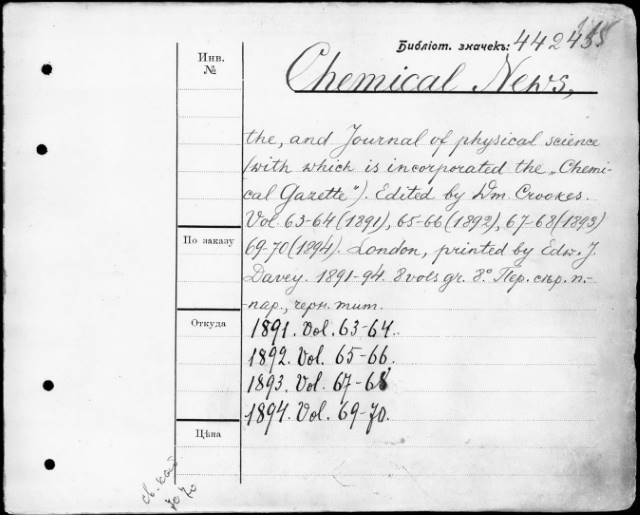 Библіот. значекъ: 442435
Инв.
№
Chemical News,
the, and Journal of physical science
(with which is incorporated the „Chemi-
cal Gazette"). Edited by Wm. Crookes.
Vol. 63-64 (1891), 65-66 (1892), 67-68 (1893)
По заказу
69-70 (1894). London, printed by Edw. J.
Davey. 1891-94. 8 vols gr. 8°. Пер. сѣр. п.-
-пар., черн. тит.
Откуда
1891. Vol. 63-64.
1892. Vol. 65-66.
1893. Vol. 67-68
1894. Vol. 69-70.
Цѣна